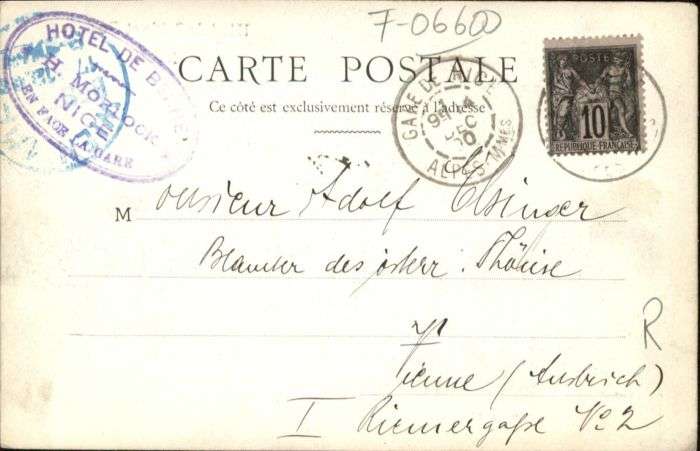 7-06600
HOTEL DE
H. MORLOCK
NICE
EN FACE LA GARE
CARTE POSTALE
Ce côté est exclusivement réservé à l'adresse
GARE DE NICE
ALPES-MMES
POSTE
10
REPUBLIQUE FRANÇAISE
Monsieur Adolf Elsinger
des österr.
Vienne (Autrich)
R
I Riemergaße No 2